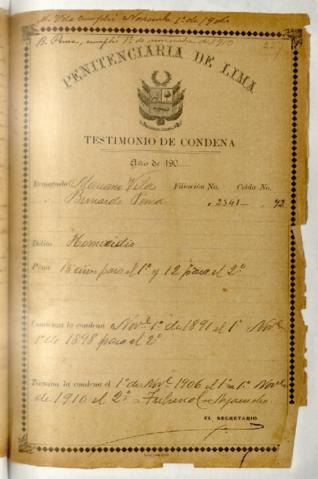 M. Vila cumplió Noviembre 1º de 190
B. Poma, cumplió 1º de noviembre de 1910
PENITENCIARIA DE LIMA
TESTIMONIO DE CONDENA
Año de 190
Rematado Mariano Vila Filiación No. Celda No.
" Bernardo Poma " 2341 — " 92
Delito Homicidio
Pena 15 años para el 1º y 12 para el 2º
Comienza la condena Novᵉ 1º de 1891 el 1º Novᵉ
1º de 1898 para el 2º
Termina la condena el 1º de Novᵉ 1906 el 1º 1º Novᵉ
de 1910 el 2º
EL SECRETARIO